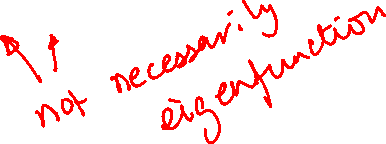 not necessarily
eigenfunction